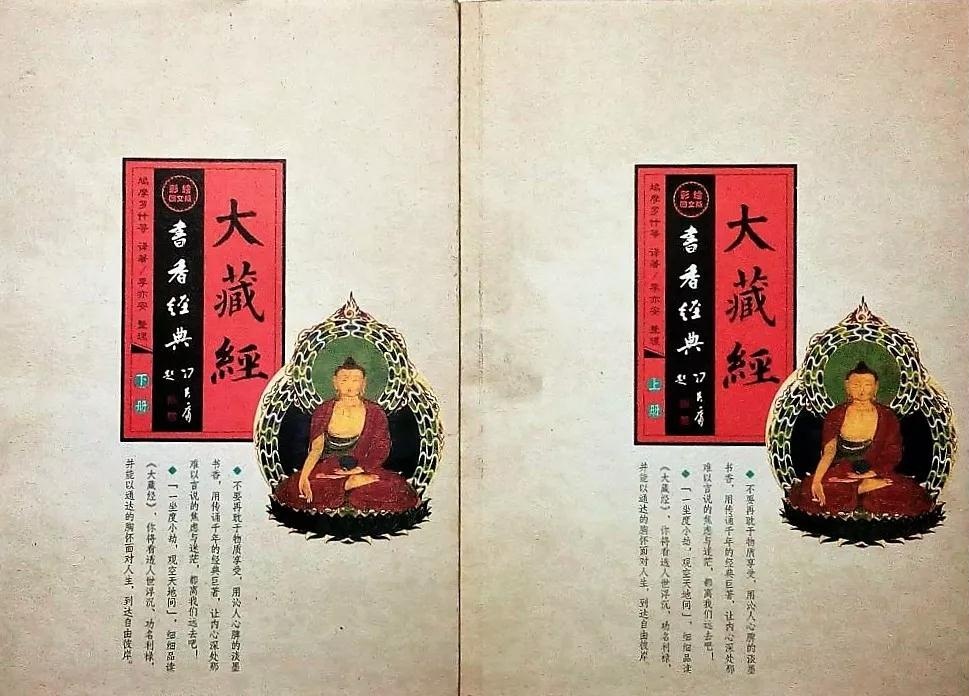 大藏經
彩绘
图文版
書香经典
冯其庸
题
鸠摩罗什等 译著/李亦安 整理
下册
◆ 不要再耽于物质享受，用沁人心脾的淡墨
书香，用传诵千年的经典巨著，让内心深处那
难以言说的焦虑与迷茫，都离我们远去吧！
◆ 「一坐度小劫，观空天地间」，细细品读
《大藏经》，你将看透人世浮沉、功名利禄，
并能以通达的胸怀面对人生，到达自由彼岸。
大藏經
彩绘
图文版
書香经典
冯其庸
题
鸠摩罗什等 译著/李亦安 整理
上册
◆ 不要再耽于物质享受，用沁人心脾的淡墨
书香，用传诵千年的经典巨著，让内心深处那
难以言说的焦虑与迷茫，都离我们远去吧！
◆ 「一坐度小劫，观空天地间」，细细品读
《大藏经》，你将看透人世浮沉、功名利禄，
并能以通达的胸怀面对人生，到达自由彼岸。